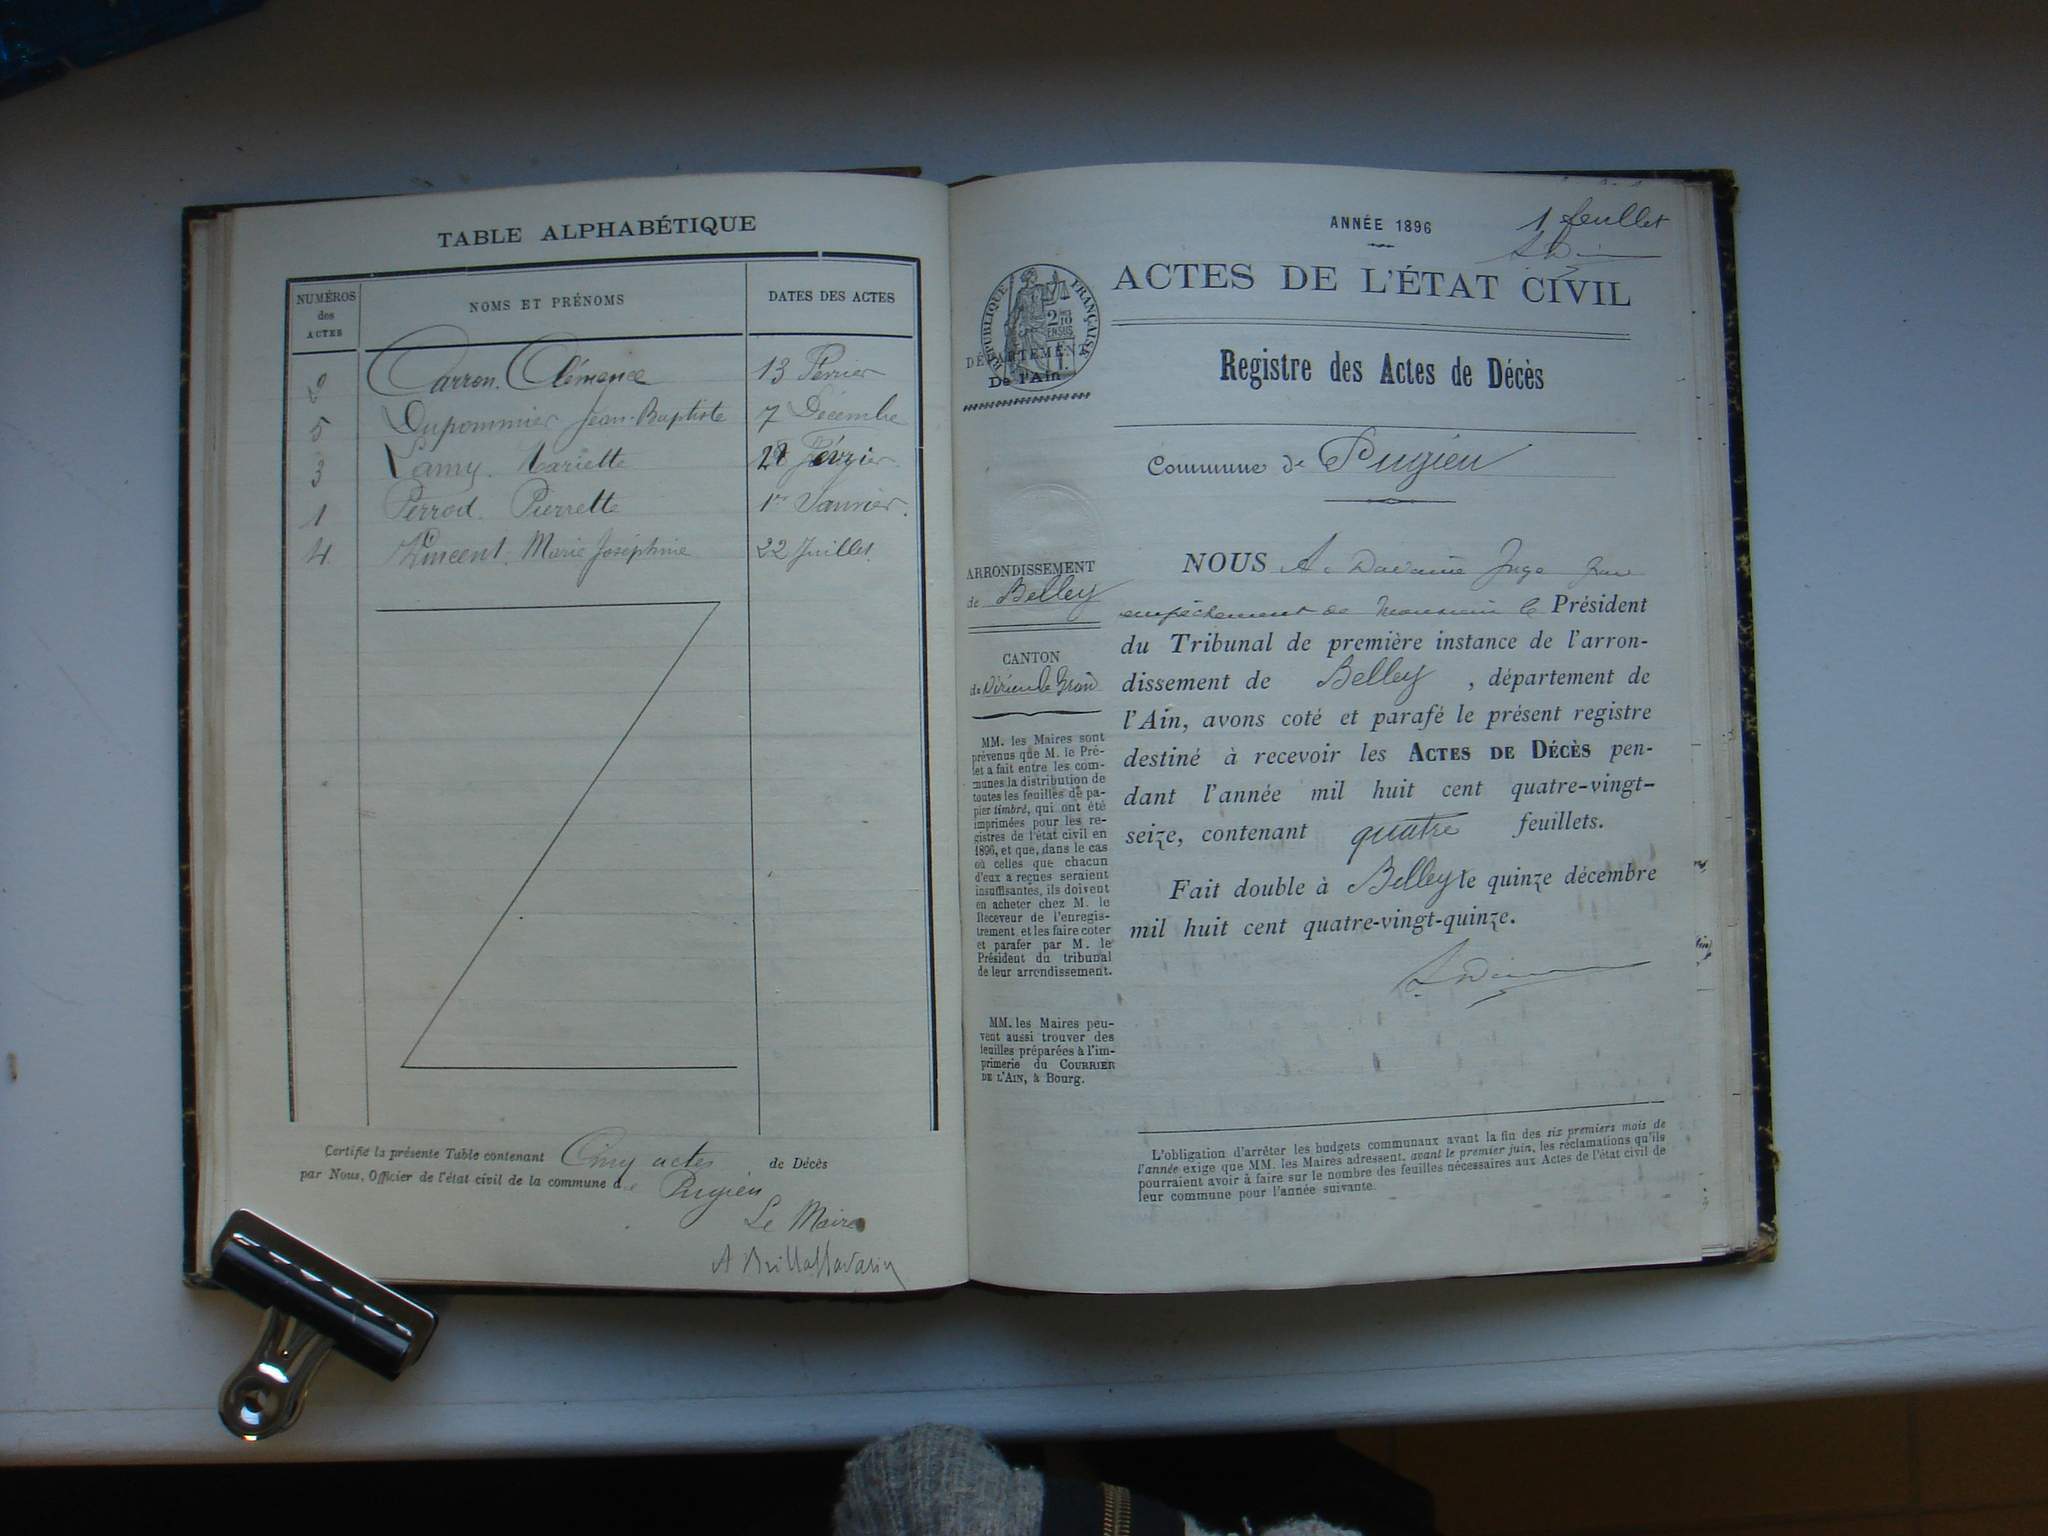 TABLE ALPHABÉTIQUE
NUMÉROS
des
ACTES
NOMS ET PRÉNOMS
DATES DES ACTES
2 Carron. Clémence 13 Février
5 Dupommier Jean-Baptiste 7 Décembre
3 Lamy. Mariette Février
1 Perrod. Pierrette 1er Janvier.
4 Vincent. Marie Joséphine 22 Juillet.
Certifié la présente Table contenant Cinq actes de Décès
par Nous, Officier de l'état civil de la commune de Pugieu
Le Maire
A Brillat Savarin
ANNÉE 1896
1 feuillet
ACTES DE L'ÉTAT CIVIL
RÉPUBLIQUE FRANÇAISE
DÉPARTEMENT
De l'Ain
Registre des Actes de Décès
Commune de Pugieu
ARRONDISSEMENT
de Belley
CANTON
de Virieu le Grand
MM. les Maires sont
prévenus que M. le Pré-
fet a fait entre les com-
munes la distribution de
toutes les feuilles de pa-
pier timbré, qui ont été
imprimées pour les re-
gistres de l'état civil en
1896, et que, dans le cas
où celles que chacun
d'eux a reçues seraient
insuffisantes, ils doivent
en acheter chez M. le
Receveur de l'enregis-
trement et les faire coter
et parafer par M. le
Président du tribunal
de leur arrondissement.
MM. les Maires peu-
vent aussi trouver des
feuilles préparées à l'im-
primerie du COURRIER
DE L'AIN, à Bourg.
NOUS A. Juge pour
empêchement de Monsieur le Président
du Tribunal de première instance de l'arron-
dissement de Belley, département de
l'Ain, avons coté et parafé le présent registre
destiné à recevoir les ACTES DE DÉCÈS pen-
dant l'année mil huit cent quatre-vingt-
seize, contenant quatre feuillets.
Fait double à Belley le quinze décembre
mil huit cent quatre-vingt-quinze.
L'obligation d'arrêter les budgets communaux avant la fin des six premiers mois de
l'année exige que MM. les Maires adressent, avant le premier juin, les réclamations qu'ils
pourraient avoir à faire sur le nombre des feuilles nécessaires aux Actes de l'état civil de
leur commune pour l'année suivante.